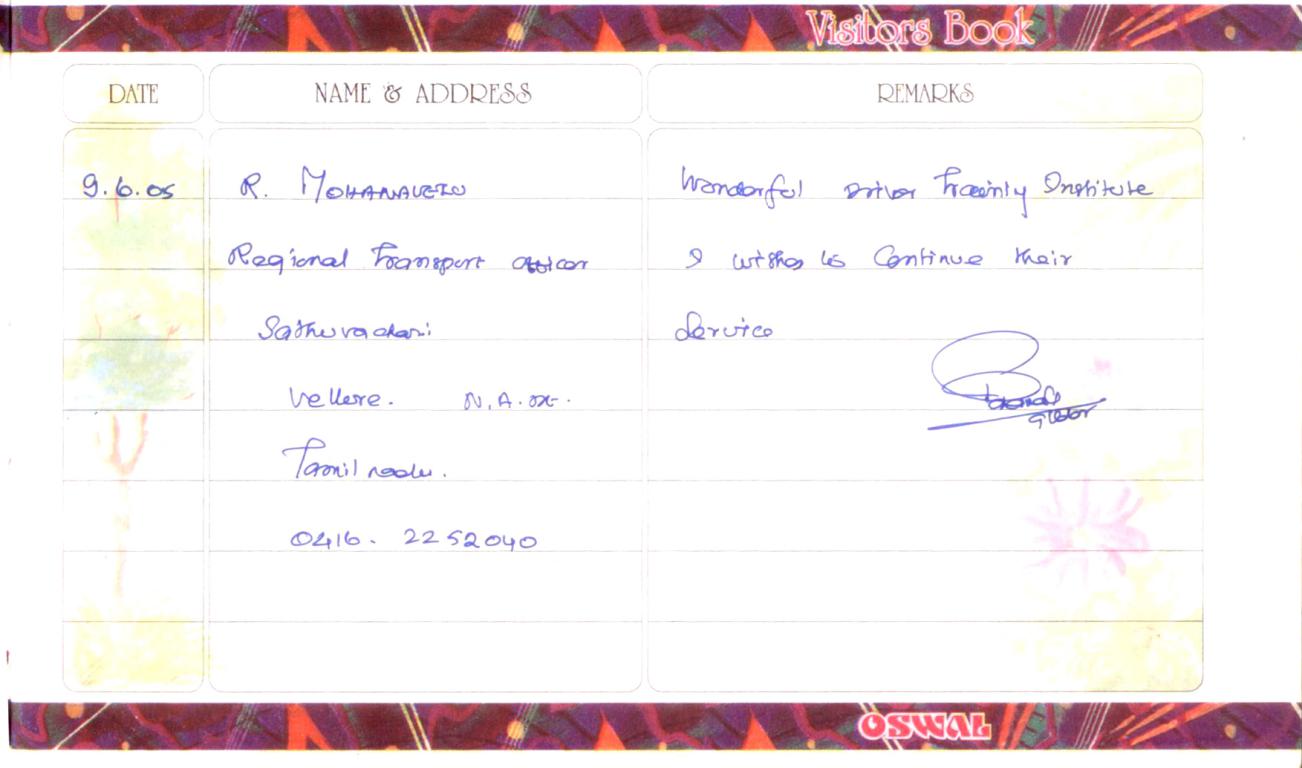 Visitors Book
DATE
NAME & ADDRESS
REMARKS
9.6.05
R. MOHANAVELU
Wonderful Driver Training Institute
Regional Transport officer
I wishes to Continue their
Sathuvachari
Service
Vellore. N.A.
Tamil nadu.
0416. 2252040
OSWAL